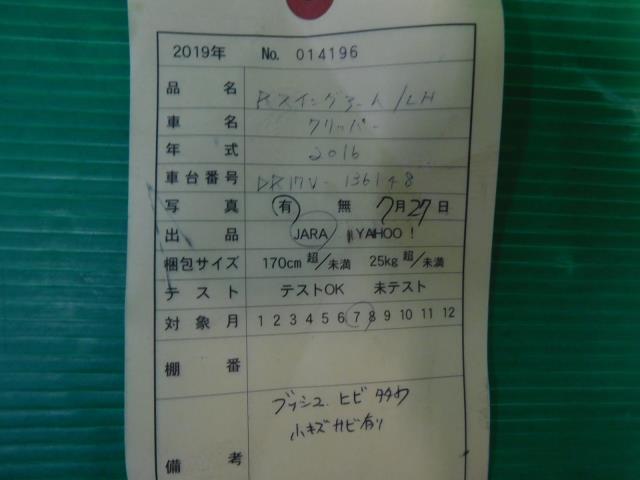 2019年 No. 014196
品名 Rスイングアーム/LH
車名 クリッパー
年式 2016
車台番号 DR17V-136148
写真 有 無 7月27日
出品 JARA YAHOO!
梱包サイズ 170cm 超/未満 25kg 超/未満
テスト テストOK 未テスト
対象月 1 2 3 4 5 6 7 8 9 10 11 12
棚番
備考 ブッシュ ヒビ
小キズ サビ有り